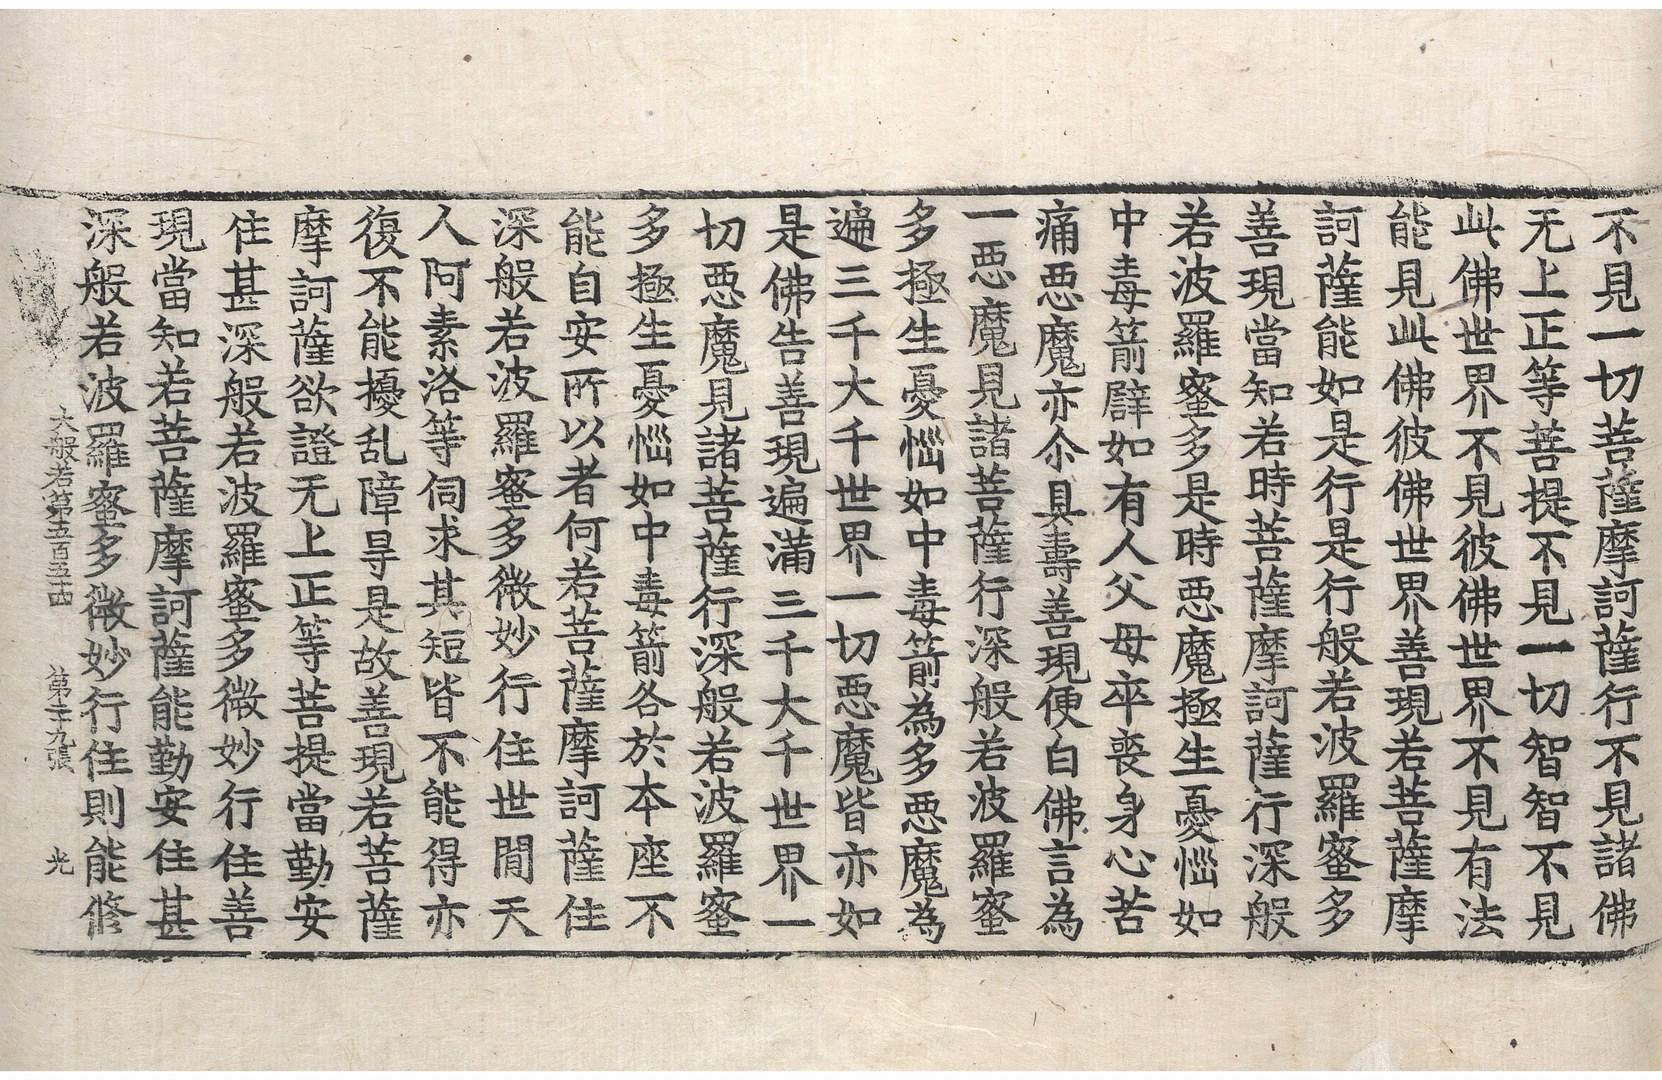 不見一切菩薩摩訶薩行不見諸佛
无上正等菩提不見一切智智不見
此佛世界不見彼佛世界不見有法
能見此佛彼佛世界善現若菩薩摩
訶薩能如是行是行般若波羅蜜多
善現當知若時菩薩摩訶薩行深般
若波羅蜜多是時悪魔極生憂惱如
中毒箭譬如有人父母卒喪身心苦
痛悪魔亦尒具壽善現便白佛言為
一悪魔見諸菩薩行深般若波羅蜜
多極生憂惱如中毒箭為多悪魔為
遍三千大千世界一切悪魔皆亦如
是佛告善現遍滿三千大千世界一
切悪魔見諸菩薩行深般若波羅蜜
多極生憂惱如中毒箭各於本座不
能自安所以者何若菩薩摩訶薩住
深般若波羅蜜多微妙行住世間天
人阿素洛等伺求其短皆不能得亦
復不能擾乱障㝵是故善現若菩薩
摩訶薩欲證无上正等菩提當勤安
住甚深般若波羅蜜多微妙行住善
現當知若菩薩摩訶薩能勤安住甚
深般若波羅蜜多微妙行住則能修
大般若第五百五十四 第二十九張 光